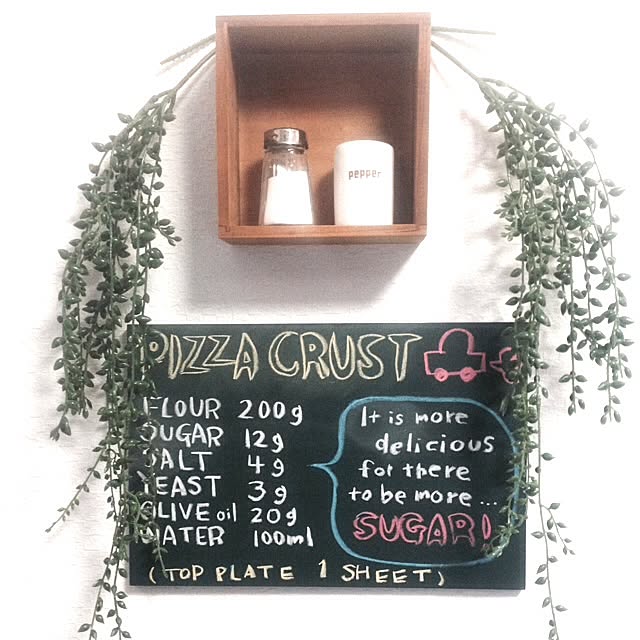 pepper
PIZZA CRUST
FLOUR 200g
SUGAR 12g
SALT 4g
YEAST 3g
OLIVE oil 20g
WATER 100ml
It is more
delicious
for there
to be more ...
SUGAR!
(TOP PLATE 1 SHEET)